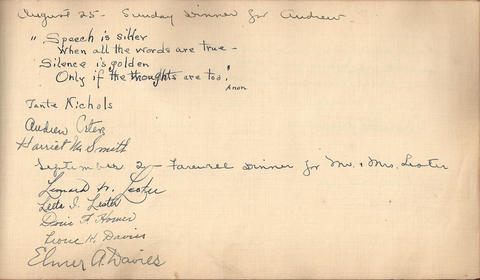 August 25 - Sunday Dinner for Andrew
" Speech is silver
When all the words are true -
Silence is golden
Only if the thoughts are too."
Anon
Tante Nichols
Andrew
Harriet M. Smith
September 2 - Farewell Dinner for Mr. & Mrs. Lester
Leonard W. Lester
Leta I. Lester
Doris F. Homer
Irene K. Davies
Elmer A. Davies